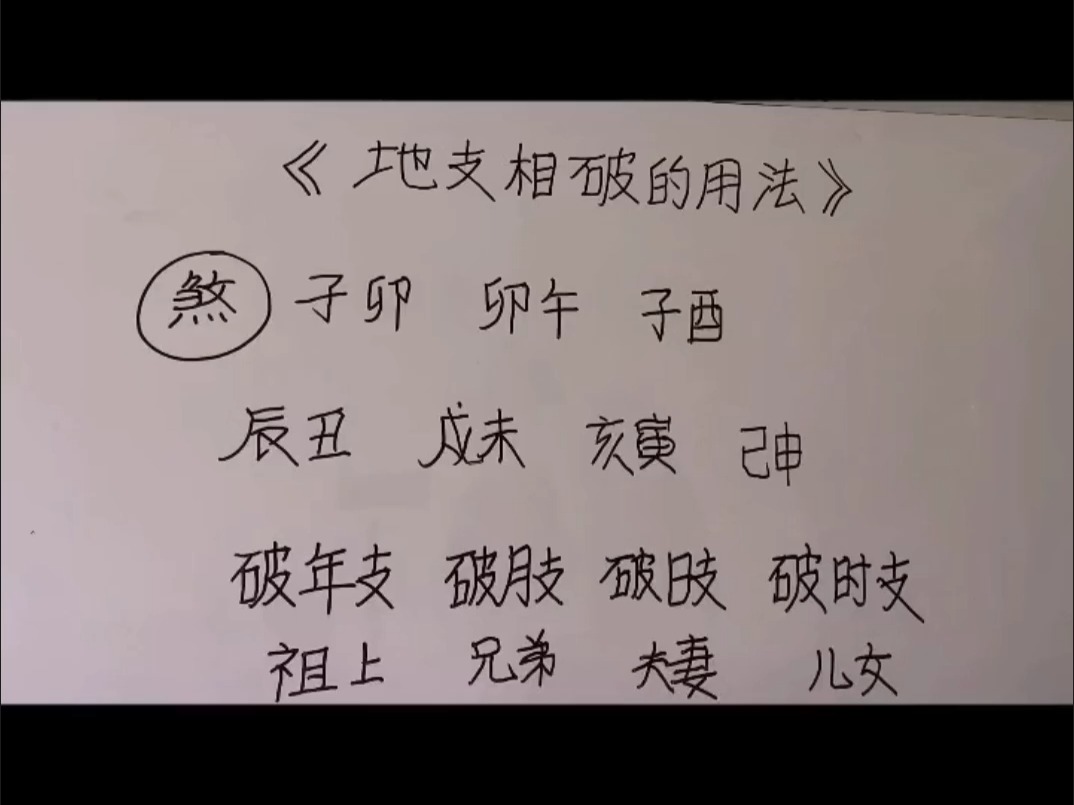 《地支相破的用法》
煞 子卯 卯午 子酉
辰丑 戌未 亥寅 己申
破年支 破月支 破日支 破时支
祖上 兄弟 夫妻 儿女